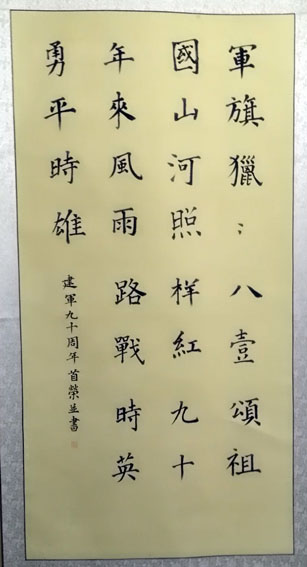 軍旗獵〻八壹頌祖
國山河照样紅九十
年來風雨路戰時英
勇平時雄
建軍九十周年首榮並書